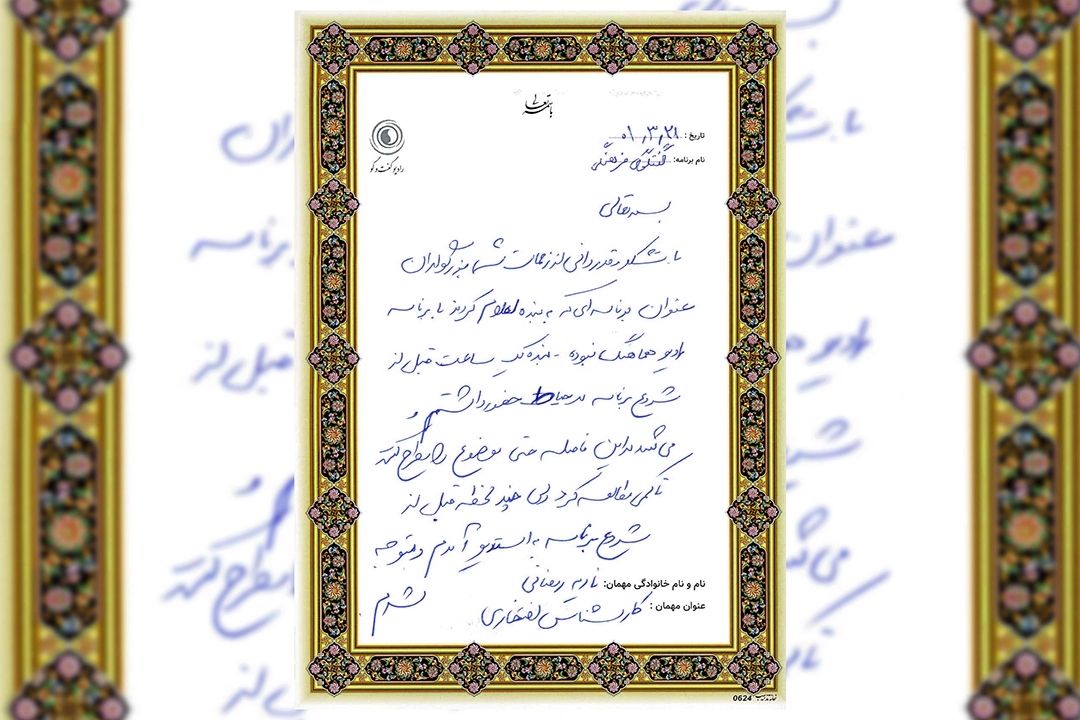 باسمه تعالی
تاریخ : ۰۱٫۳٫۲۱
نام برنامه: گفتگوی فرهنگی
رادیو گفت و گو
بسمه تعالی
با تشکر و قدردانی از زحمات شما بزرگواران
عنوان برنامه ای که به بنده اعلام کردند با برنامه
رادیو هماهنگ نبوده - بنده یک ساعت قبل از
شروع برنامه در حیاط حضور داشتم و
می شد در این فاصله حتی موضوع را مطرح کنند
تا کمی مطالعه کرد ولی چند لحظه قبل از
شروع برنامه به استودیو آمدم و متوجه
شدم
نام و نام خانوادگی مهمان: رمضانی
عنوان مهمان : کارشناس افتخاری
0624